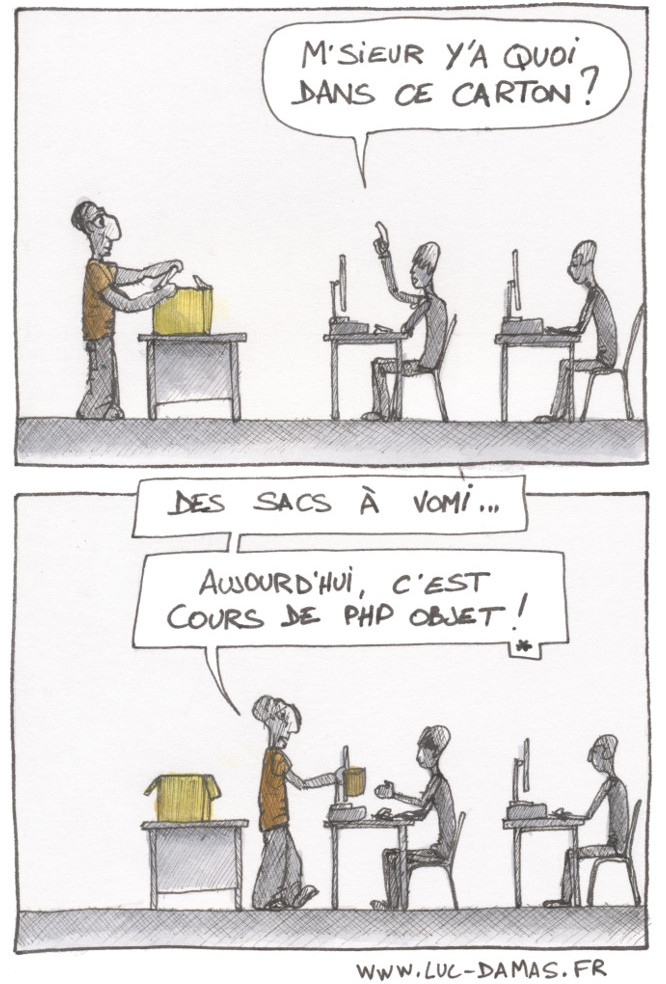 M'SIEUR Y'A QUOI
DANS CE CARTON?
DES SACS À VOMI...
AUJOURD'HUI, C'EST
COURS DE PHP OBJET!
*
WWW.LUC-DAMAS.FR